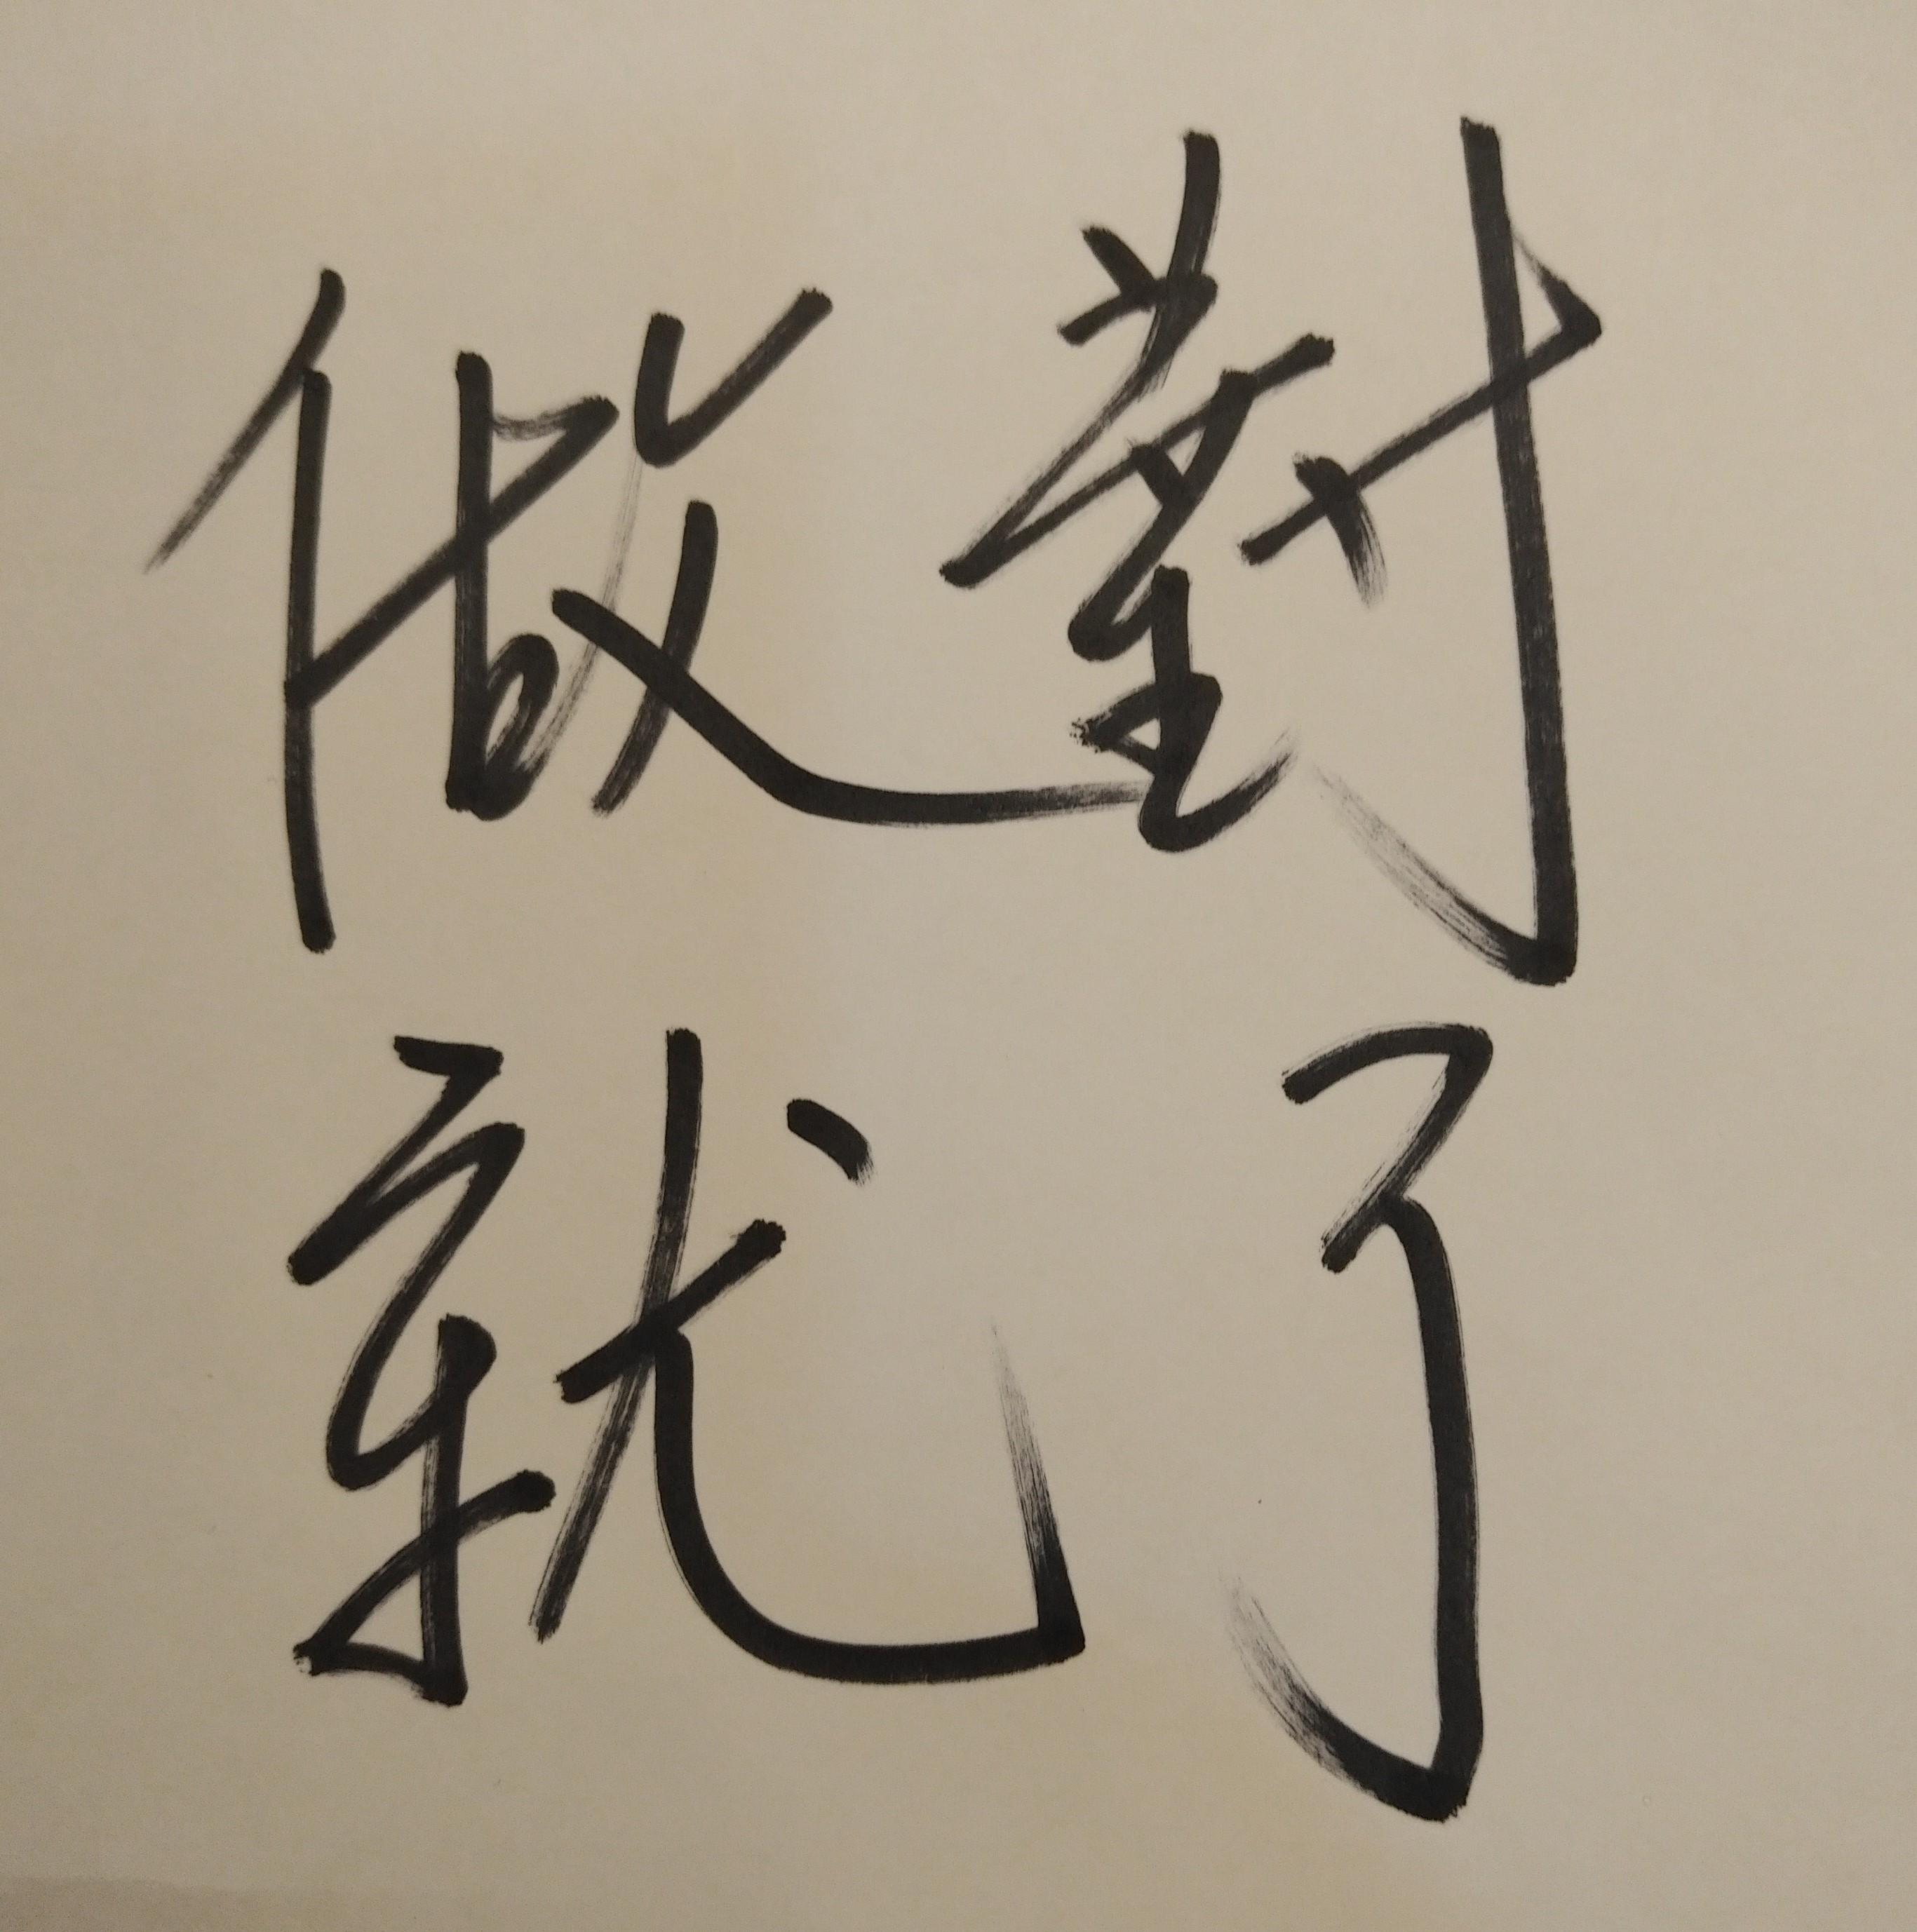 做對
就了